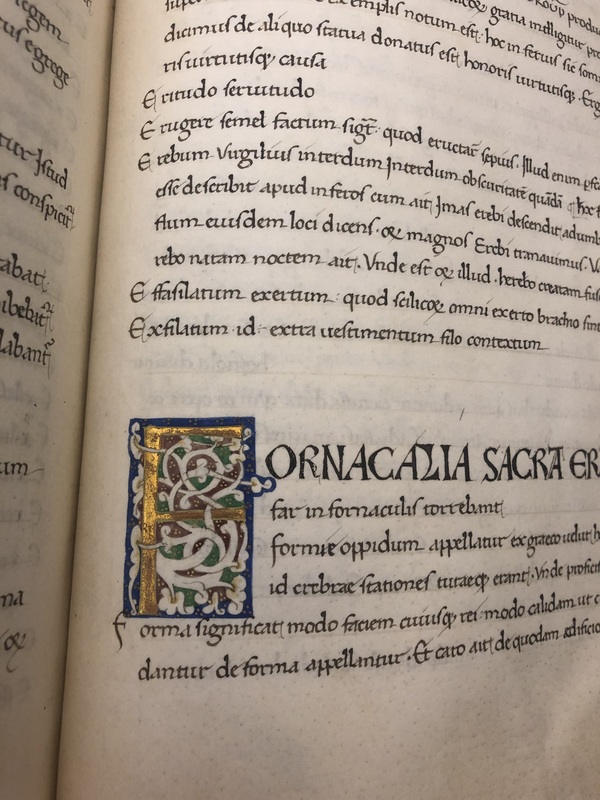 icegem
cus egrege
tur Istud
is conspicit
abat
ibebit
labant
um
na
gratia intelligitur
emplis notum est. hoc in fetuis sic
dicimus de aliquo statua donatus est honoris uirtutisq; Erg
ris uirtutisq; causa
Eritudo seruitudo
Erugere semel factum sigt̄. quod eructat̄ sepius. Illud enim
Erebum Virgilius interdum Interdum obscuritatē quādā hoc
esse describit apud inferos cum ait Imas erebi descendit adumb
flum eiusdem loci dicens. & magnos Erebi tranauimus. V
rebo natam noctem ait. Vnde est & illud. herebo creatam fus
Effafilatum exertum. quod scilicet omni exerto brachio sint
Exfilatum. id. extra uestimentum filo contextum
FORNACALIA SACRA ER
far in fornaculis torrebant
formie oppidum appellatur ex graeco uidut h
id crebrae stationes tutaeq; erant. Vnde profici
forma significat modo faciem cuiusq; rei modo calidam ut c
dantur de forma appellantur. Et cato ait de quodam ædificio